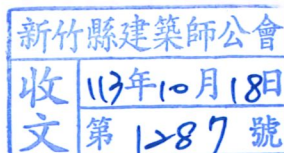 新竹縣建築師公會
收文
113年10月18日
第1287號